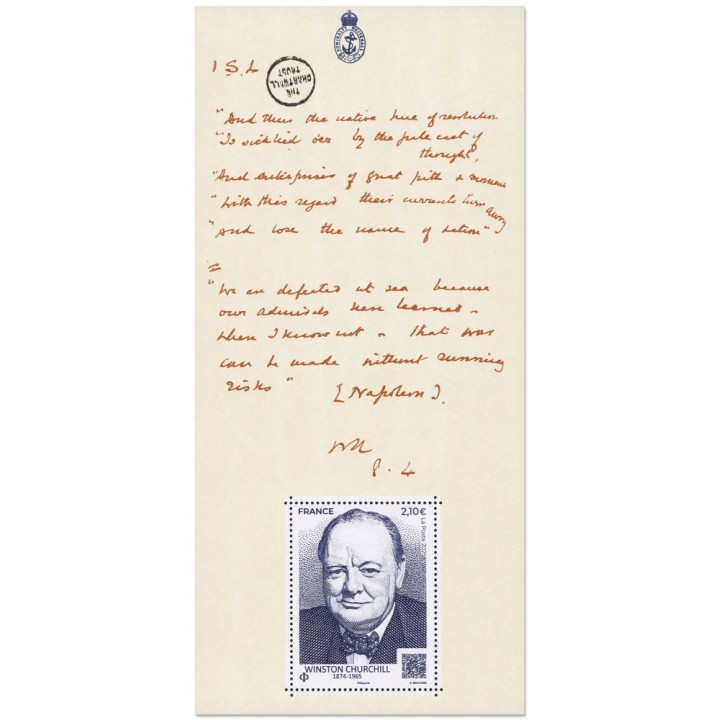 1 S.L
THE
CHARTWELL
TRUST
"And thus the native hue of resolution
"Is sicklied o'er by the pale cast of
thought,
"And enterprises of great pith & moment
"With this regard their currents turn away
"And lose the name of action"
"We are defeated at sea because
our admirals have learned -
where I know not - that war
can be made without running
risks"
[Napoleon].
8.4
FRANCE 2,10€
La Poste
WINSTON CHURCHILL
1874-1965